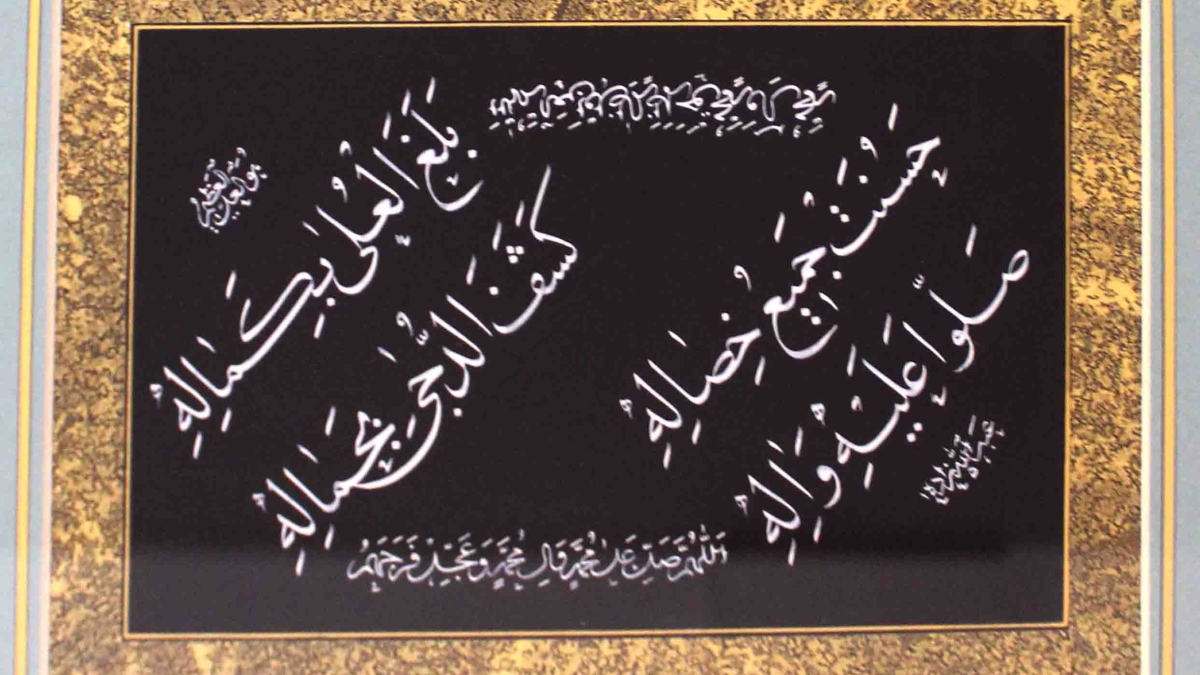 هو العلي العظيم
بَلَغَ العُلىٰ بِكَمالِهِ
كَشَفَ الدُّجىٰ بِجَمالِهِ
حَسُنَت جَميعُ خِصالِهِ
صَلّوا عَلَيهِ وَآلِهِ
اَللّهُمَّ صَلِّ عَلىٰ مُحَمَّدٍ وَالِ مُحَمَّدٍ وَعَجِّل فَرَجَهُم